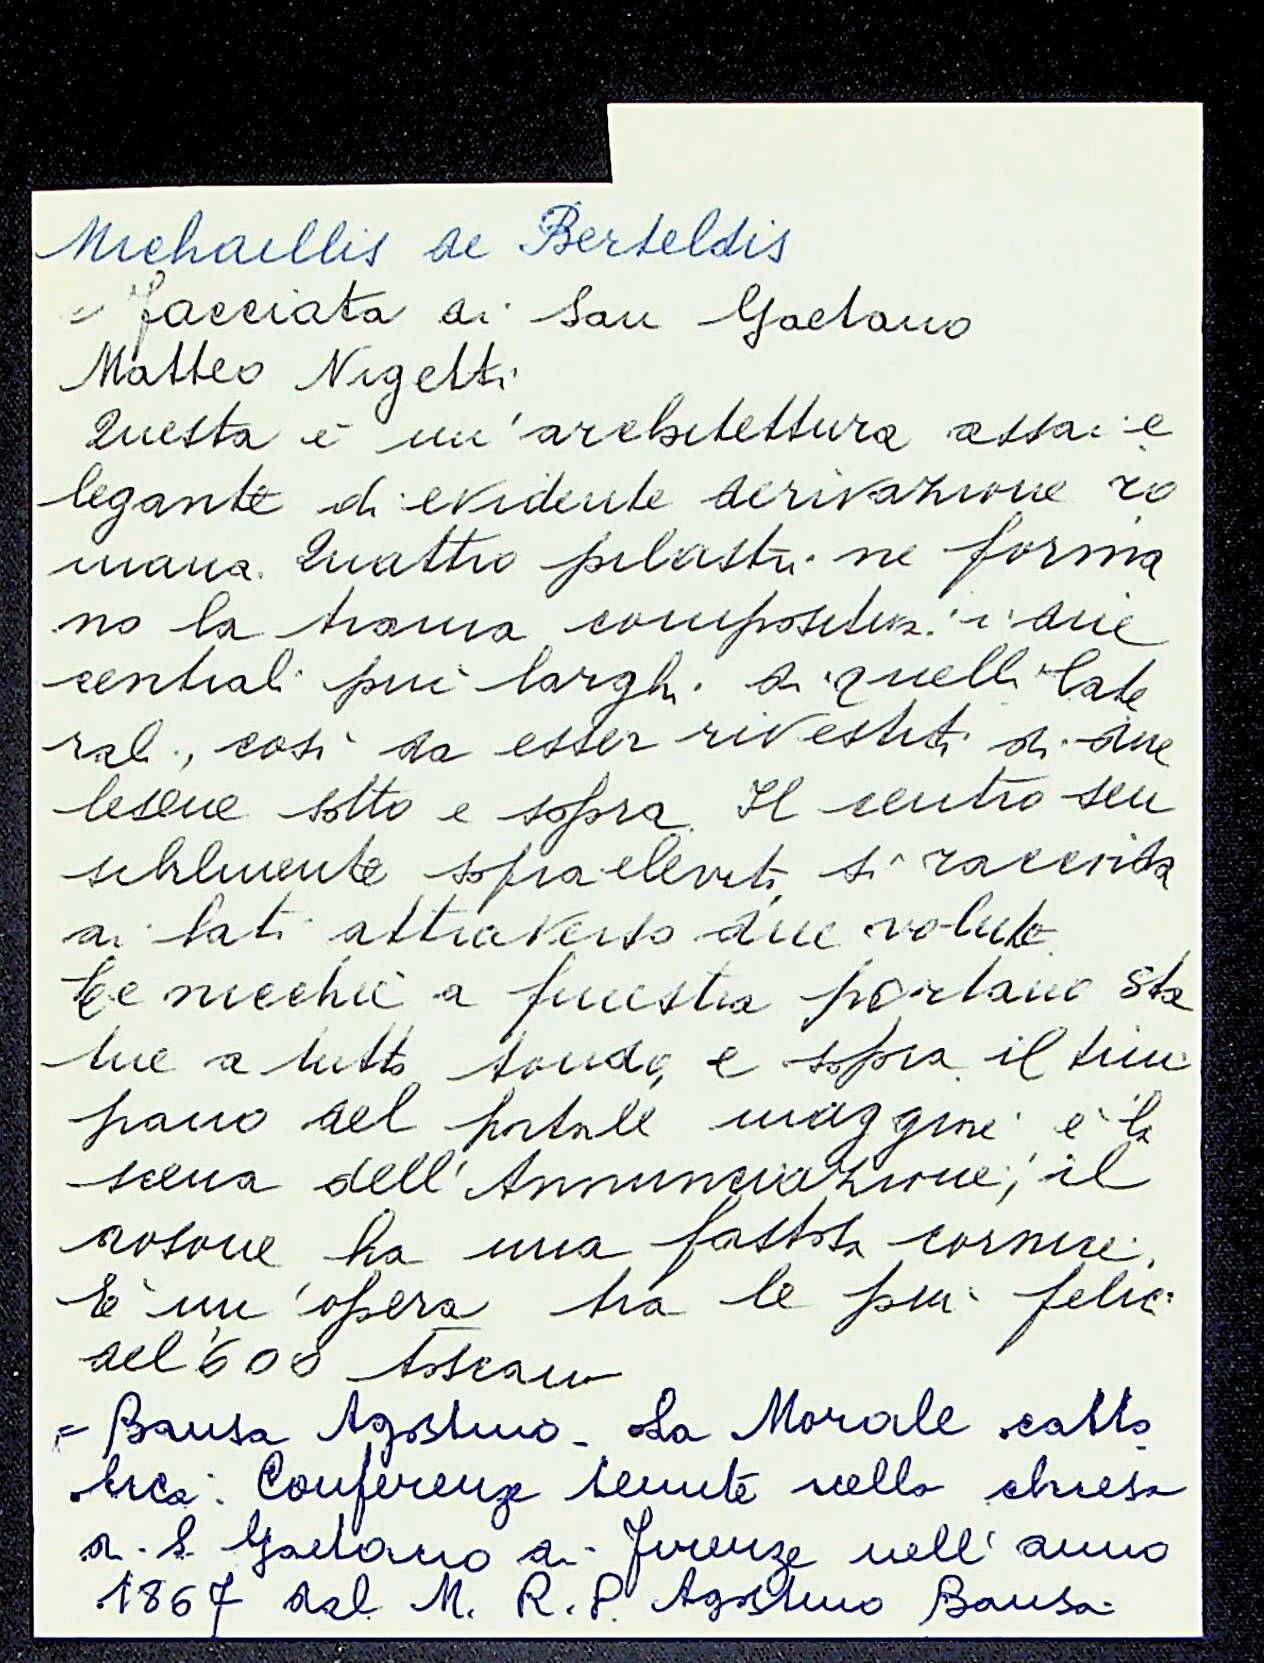 Michaellis de Berteldis
= Facciata di San Gaetano
Matteo Nigetti
Questa è un'architettura assai e
legante di evidente derivazione ro
mana. Quattro pilastri ne forma
no la trama compositiva: i due
centrali più larghi di quelli late
rali, così da esser rivestiti di due
lesene sotto e sopra. Il centro sen
sibilmente sopraelevato si raccorda
ai lati attraverso due volute
Le nicchie a finestra portano sta
tue a tutto tondo, e sopra il tim
pano del portale maggiore è la
scena dell'Annunciazione; il
rosone ha una fastosa cornice.
È un'opera tra le più felici
del '600 toscano
= Bausa Agostino - La Morale catto
lica. Conferenze tenute nella chiesa
di S. Gaetano di Firenze nell'anno
1867 dal M. R. P. Agostino Bausa.